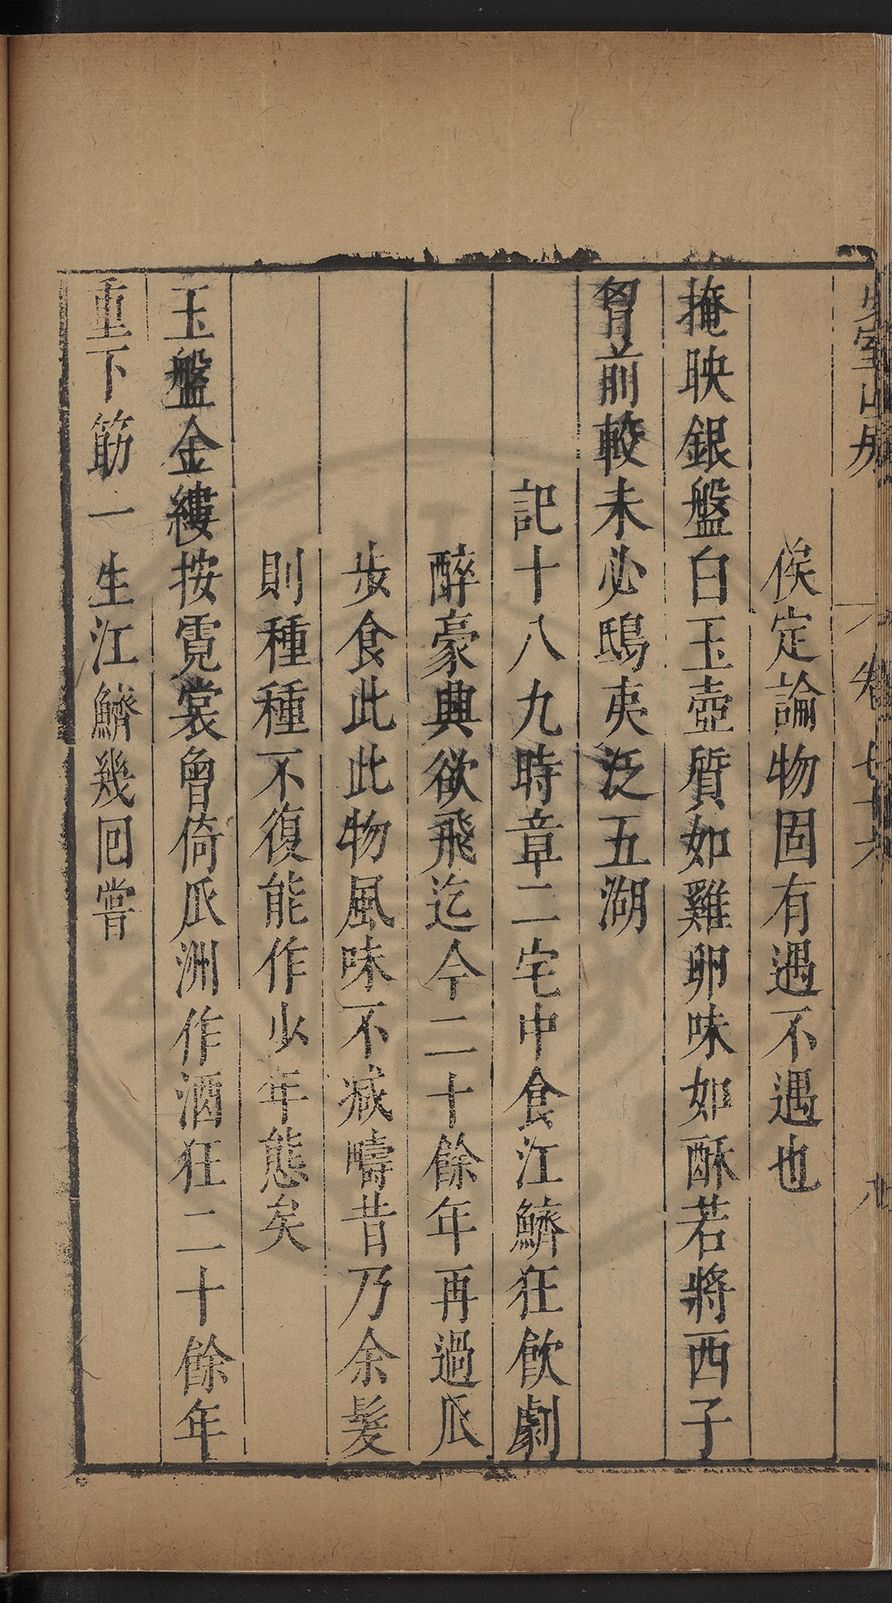 少室山房
卷七十六
九
俟定論物固有遇不遇也
掩映銀盤白玉壺質如雞卵味如酥若將西子
胷前較未必鴟夷泛五湖
記十八九時章二宅中食江鱭狂飲劇
醉豪興欲飛迄今二十餘年再過瓜
步食此此物風味不減疇昔乃余髮
則種種不復能作少年態矣
玉盤金縷按霓裳曾倚瓜洲作酒狂二十餘年
重下筯一生江鱭幾回嘗